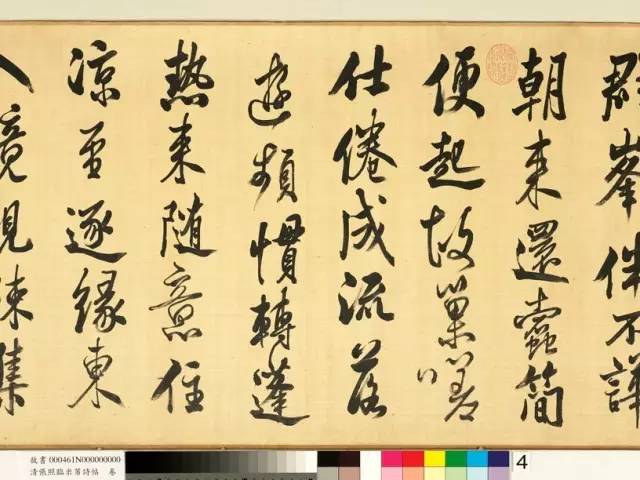 群峯伴不譁
朝来還蠹簡
便起故巢嗟
仕倦成流落
遊頻慣轉蓬
熱来随意住
凉至逐緣東
入境親疎集
故書 000461N000000000
清張照臨米芾詩帖 卷
4